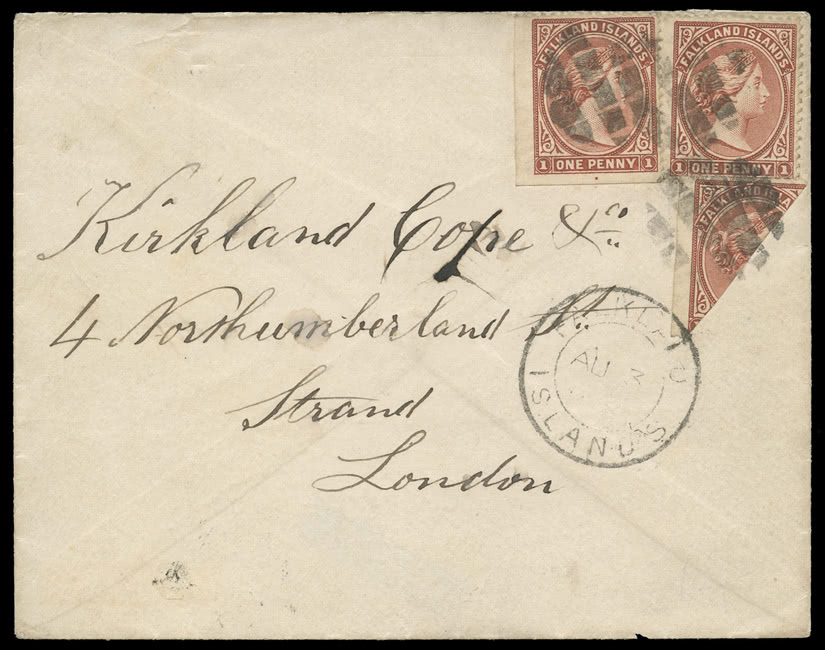 FALKLAND ISLANDS
1 ONE PENNY 1
FALKLAND ISLANDS
1 ONE PENNY 1
FALKLAND ISLA
Kirkland Cope & Co
4 Northumberland St.
Strand
London
FALKLAND
AU 3
ISLANDS